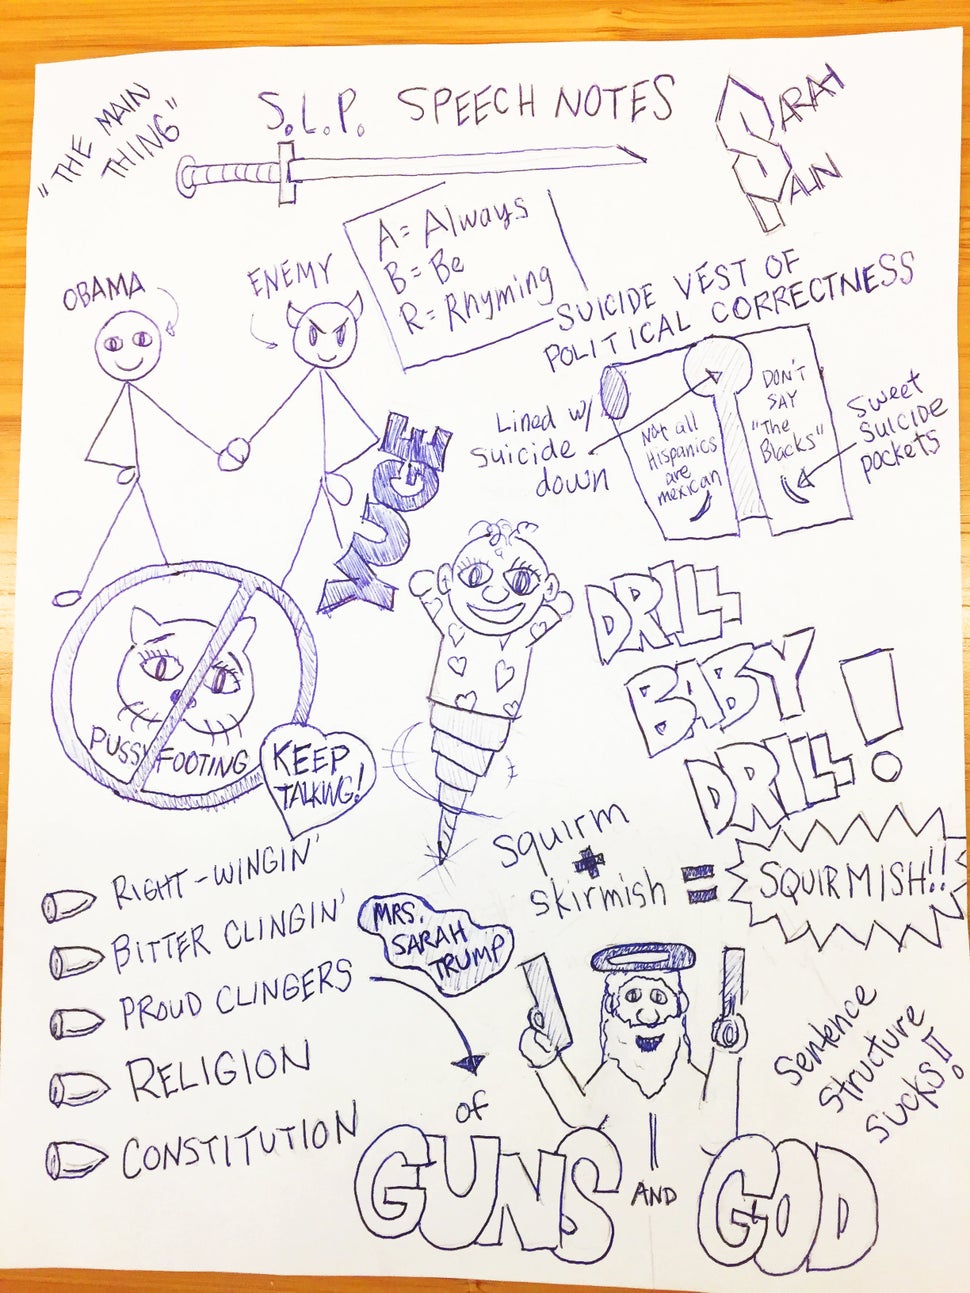 "THE MAIN
THING"
S.L.P. SPEECH NOTES
SARAH
PALIN
A= Always
B= Be
R= Rhyming
OBAMA
ENEMY
SUICIDE VEST OF
POLITICAL CORRECTNESS
Lined w/
suicide
down
Not all
Hispanics
are
mexican
DON'T
SAY
"The
Blacks"
Sweet
Suicide
pockets
YUGE
PUSSYFOOTING
KEEP
TALKING!
DRILL
BABY
DRILL!
squirm
+
skirmish = SQUIRMISH!!
RIGHT-WINGIN'
BITTER CLINGIN'
PROUD CLINGERS
RELIGION
CONSTITUTION
MRS.
SARAH
TRUMP
of
GUNS AND GOD
Sentence
Structure
Sucks!!